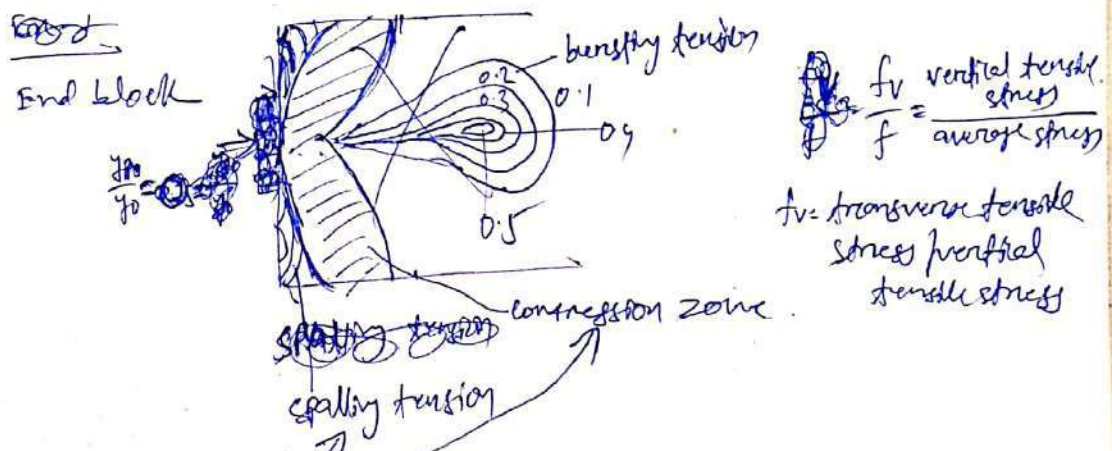 End block
bursting tension
0.2
0.3
0.1
0.4
0.5
compression zone.
spalling tension
spalling tension
fv/f = vertical tensile stress/average stress
fv = transverse tensile
stress/vertical
tensile stress